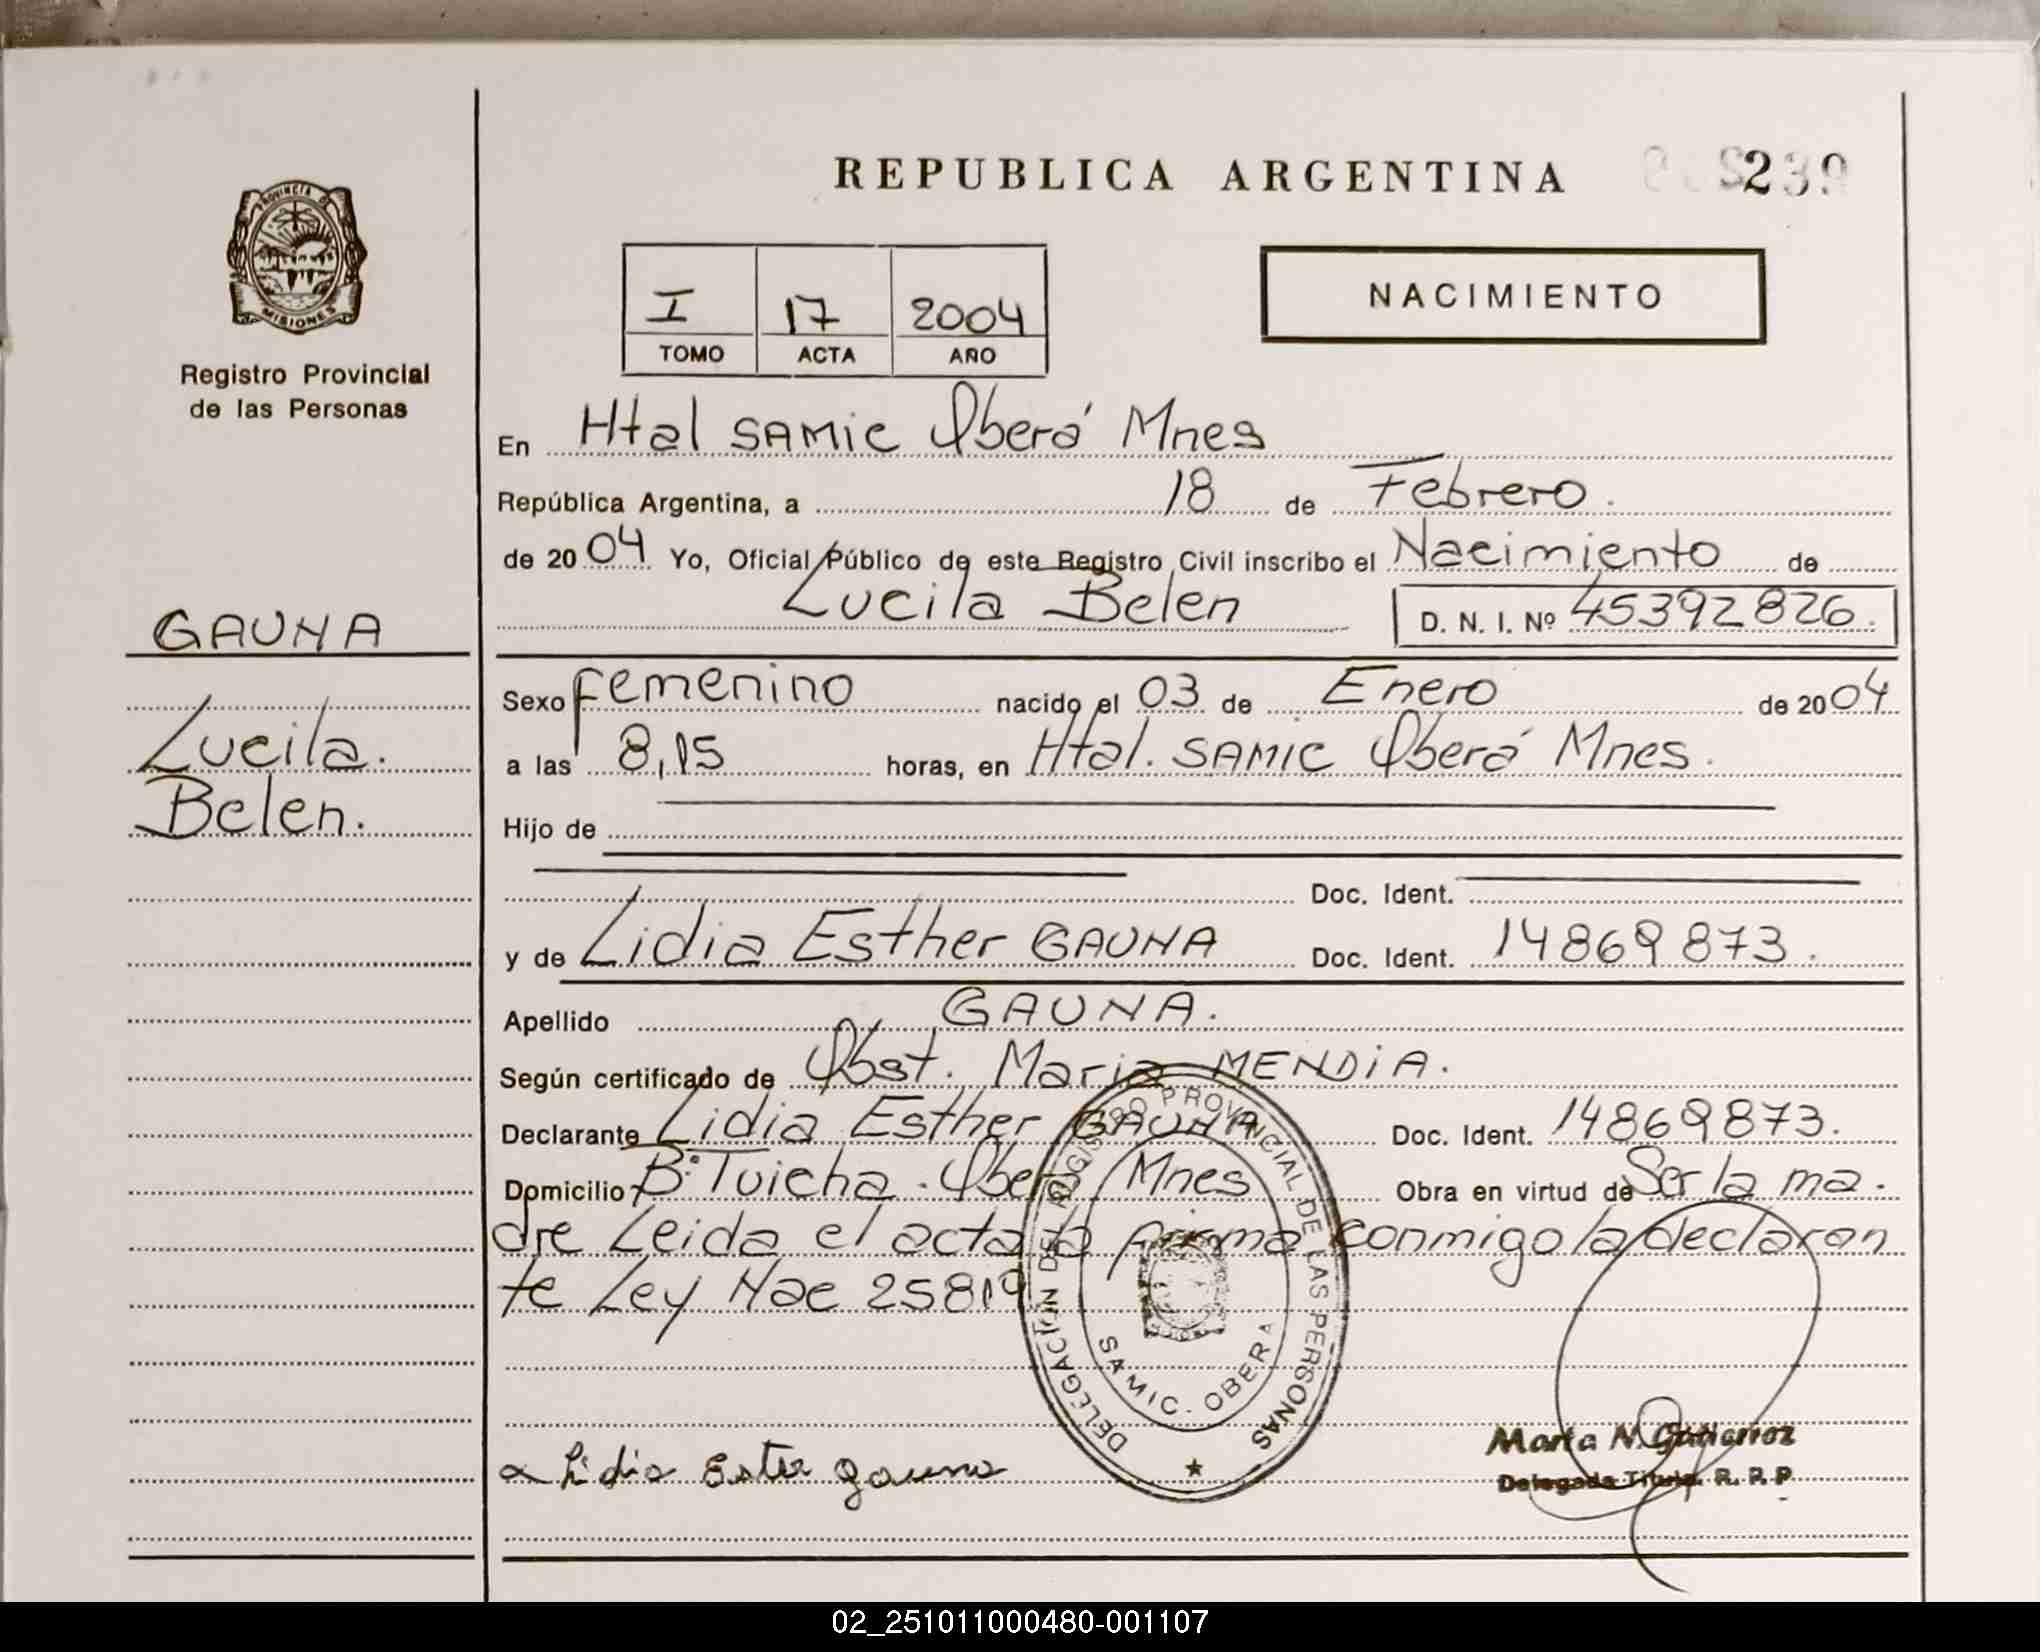 REPUBLICA ARGENTINA
239
PROVINCIA DE
MISIONES
Registro Provincial
de las Personas
NACIMIENTO
I 17 2004
TOMO ACTA AÑO
En Htal SAMIC Oberá Mnes
República Argentina, a 18 de Febrero.
de 2004 Yo, Oficial Público de este Registro Civil inscribo el Nacimiento de
Lucila Belen D. N. I. Nº 45392826.
GAUNA
Lucila.
Belen.
Sexo Femenino nacido el 03 de Enero de 2004
a las 8,15 horas, en Htal. SAMIC Oberá Mnes.
Hijo de
Doc. Ident.
y de Lidia Esther GAUNA Doc. Ident. 14869873.
Apellido GAUNA.
Según certificado de Obst. Maria MENDIA.
Declarante Lidia Esther GAUNA Doc. Ident. 14869873.
Domicilio Bº Tuicha. Oberá Mnes Obra en virtud de Ser la ma.
dre Leida el acta la firma conmigo la declaran
te Ley Nac 25819
DELEGACIÓN DEL REGISTRO PROVINCIAL DE LAS PERSONAS
SAMIC. OBERA
Lidia Ester gauna
Marta N. Gutierrez
Delegada Titular R. P. P
02_251011000480-001107